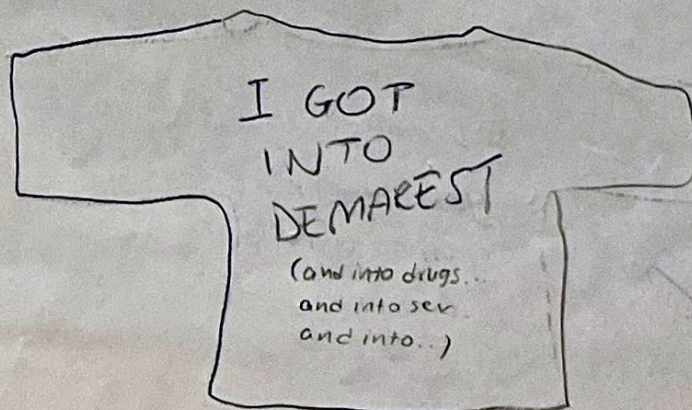 I GOT
INTO
DEMAREST
(and into drugs..
and into sex
and into..)